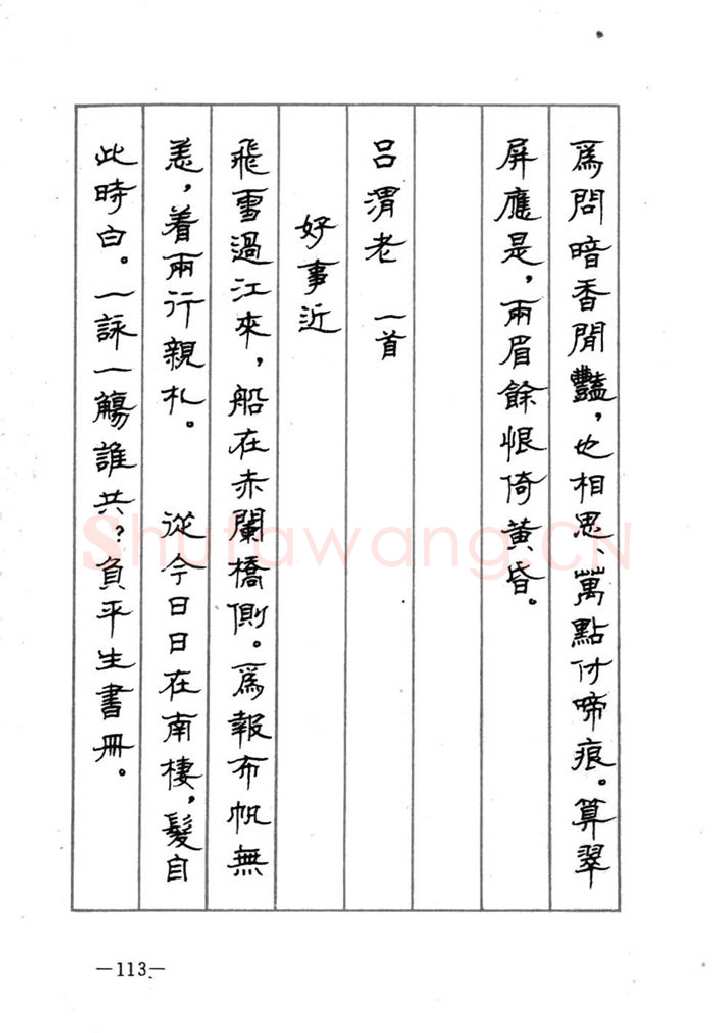 爲問暗香閒豔，也相思萬點付啼痕。算翠
屏應是，兩眉餘恨倚黄昏。
呂渭老 一首
好事近
飛雪過江來，船在赤闌橋側。爲報布帆無
恙，着兩行親札。 從今日日在南棲，髮自
此時白。一詠一觴誰共？負平生書冊。
—113—
Shufawang.CN